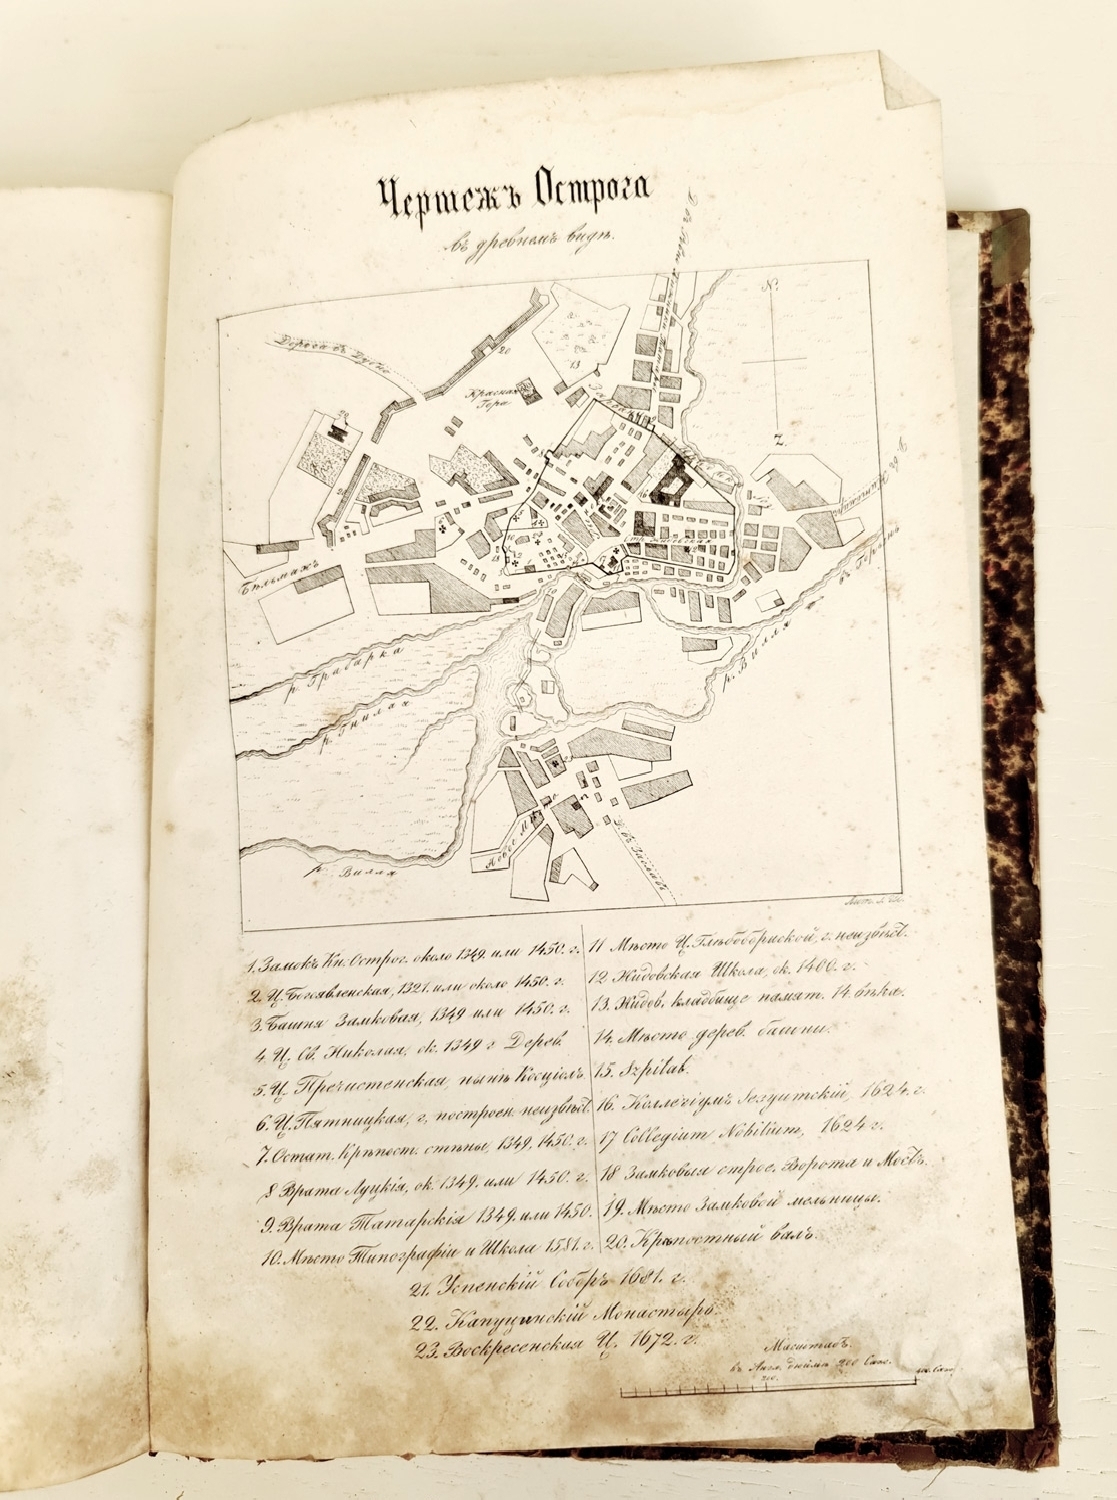 Чертежъ Острога
въ древнемъ видѣ.
N.
Дорога въ Дубно
20
13
Красная
Гора
Z.
Бѣльмажъ
р. Грабарка
р. Гнилах
р. Вилля
р. Вилля
Новое Мѣсто
Д. въ Заславъ
1. Замокъ Кн. Острог. около 1349. или 1450. г.
2. Ц. Богоявленская, 1321. или около 1450. г.
3. Башня Замковая, 1349 или 1450. г.
4. Ц. Св. Николая, ок. 1349 г Дерев.
5. Ц. Пречистенская, нынѣ Косціолъ.
6. Ц. Пятницкая, г. построен. неизвѣст.
7. Остат. Крѣпост. стѣны, 1349, 1450. г.
8 Врата Луцкія, ок. 1349. или 1450. г.
9. Врата Татарскія 1349. или 1450.
10. Мѣсто Типографіи и Школа 1581. г.
11 Мѣсто Ц. Глѣбоборисской, г. неизвѣст.
12 Жидовская Школа, ок. 1400. г.
13. Жидов. кладбище памят. 14. вѣка.
14. Мѣсто дерев. башни.
15. Szpital.
16. Коллегіумъ Іезуитскій, 1624. г.
17 Collegium Nobilium, 1624 г.
18 Замковыя строе. Ворота и Мостъ.
19. Мѣсто Замковой мельницы.
20. Крѣпостный валъ.
21. Успенскій Соборъ 1681. г.
22. Капуцинскій Монастырь.
23. Воскресенская Ц. 1672. г.
Масштабъ.
въ Англ. дюймѣ 200 Саж.
200.
400. Саж.